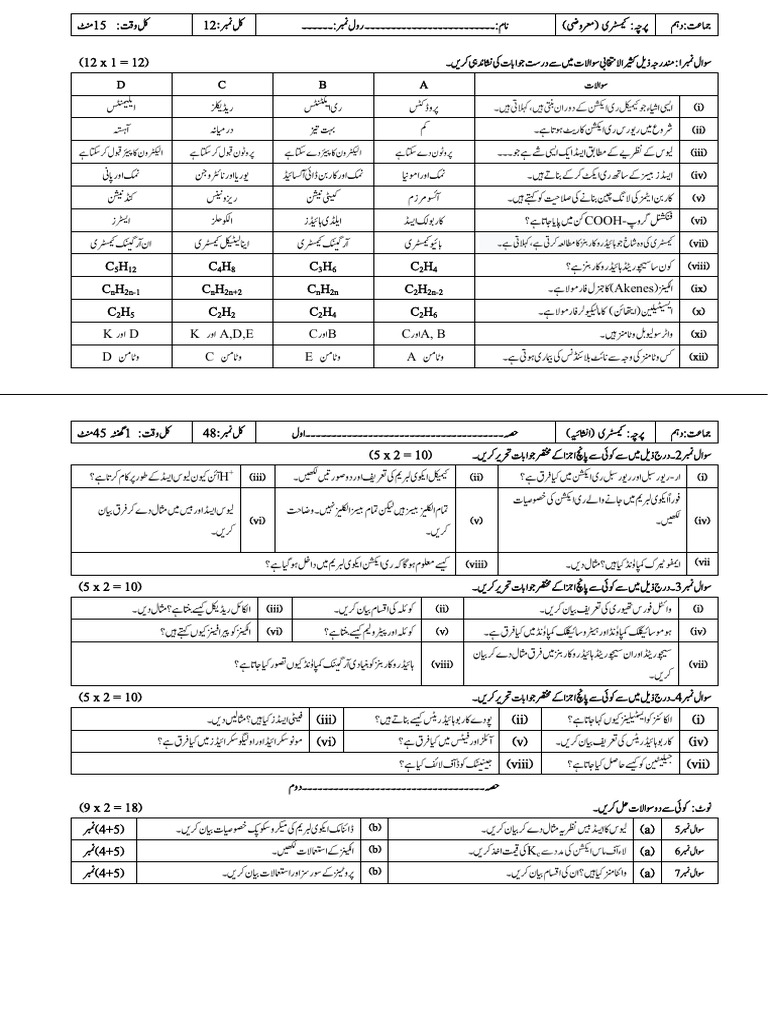 جماعت: دہم پرچہ: کیمسٹری (معروضی) نام:------------------------رول نمبر:------ کل نمبر:12 کل وقت: 15منٹ
سوال نمبر1: مندرجہ ذیل کثیر الانتخابی سوالات میں سے درست جوابات کی نشاندہی کریں۔ (12 x 1 = 12)
سوالات A B C D
(i) ایسی اشیاء جو کیمیکل ری ایکشن کے دوران بنتی ہیں، کہلاتی ہیں۔ پروڈکٹس ری ایکٹنٹس ریڈیکلز ایلیمنٹس
(ii) شروع میں ریورس ری ایکشن کا ریٹ ہوتا ہے۔ کم بہت تیز درمیانہ آہستہ
(iii) لیوس کے نظریے کے مطابق ایسڈ ایک ایسی شے ہے جو۔۔۔ پروٹون دے سکتا ہے الیکٹرون کا پیئر دے سکتا ہے پروٹون قبول کر سکتا ہے الیکٹرون کا پیئر قبول کر سکتا ہے
(iv) ایسڈز بیسز کے ساتھ ری ایکٹ کر کے بناتے ہیں۔ نمک اور امونیا نمک اور کاربن ڈائی آکسائیڈ یوریا اور نائٹروجن نمک اور پانی
(v) کاربن ایٹمز کی لانگ چین بنانے کی صلاحیت کو کہتے ہیں۔ آئسومرزم کیٹی نیشن ریزونینس کنڈنیشن
(vi) فنکشنل گروپ -COOH کن میں پایا جاتا ہے؟ کاربولک ایسڈ ایلڈی ہائیڈز الکوحلز ایسٹرز
(vii) کیمسٹری کی وہ شاخ جو ہائیڈروکاربنز کا مطالعہ کرتی ہے، کہلاتی ہے۔ بائیو کیمسٹری آرگینک کیمسٹری اینالیٹیکل کیمسٹری ان آرگینک کیمسٹری
(viii) کون سا سیچوریٹڈ ہائیڈروکاربنز ہے؟ C2H4 C3H6 C4H8 C5H12
(ix) الکینز (Akenes) کا جنرل فارمولا ہے۔ C2H2n-2 CnH2n CnH2n+2 CnH2n-1
(x) ایسیٹیلین (ایتھائن) کا مالیکیولر فارمولا ہے۔ C2H6 C2H4 C2H2 C2H5
(xi) واٹر سولیوبل وٹامنز ہیں۔ A, B اور C B اور C A,D,E اور K D اور K
(xii) کس وٹامنز کی وجہ سے نائٹ بلائنڈنس کی بیماری ہوتی ہے۔ وٹامن A وٹامن E وٹامن C وٹامن D
جماعت: دہم پرچہ: کیمسٹری (انشائیہ) حصہ------------------------اول کل نمبر:48 کل وقت: 1گھنٹہ 45منٹ
سوال نمبر2۔ درج ذیل میں سے کوئی سے پانچ اجزا کے مختصر جوابات تحریر کریں۔ (5 x 2 = 10)
(i) ار-ریورسبل اور ریورسبل ری ایکشن میں کیا فرق ہے؟ (ii) کیمیکل ایکوی لبریم کی تعریف اور دو صورتیں لکھیں۔ (iii) H+ آئن کیوں لیوس ایسڈ کے طور پر کام کرتا ہے؟
(iv) فوراً ایکوی لبریم میں جانے والے ری ایکشن کی خصوصیات لکھیں۔ (v) تمام الکلیز بیسز ہیں لیکن تمام بیسز الکلیز نہیں۔ وضاحت کریں۔ (vi) لیوس ایسڈ اور بیس میں مثال دے کر فرق بیان کریں۔
(vii ایمفوٹیرک کمپاؤنڈ کیا ہیں؟ مثال دیں۔ (viii) کیسے معلوم ہوگا کہ ری ایکشن ایکوی لبریم میں داخل ہوگیا ہے؟
سوال نمبر3۔ درج ذیل میں سے کوئی سے پانچ اجزا کے مختصر جوابات تحریر کریں۔ (5 x 2 = 10)
(i) وائٹل فورس تھیوری کی تعریف بیان کریں۔ (ii) کوئلہ کی اقسام بیان کریں۔ (iii) الکائل ریڈیکل کیسے بنتا ہے؟ مثال دیں۔
(iv) ہوموسائیکلک کمپاؤنڈ اور ہیٹروسائیکلک کمپاؤنڈ میں کیا فرق ہے۔ (v) کوئلہ اور پیٹرولیم کیسے بنتا ہے؟ (vi) الکینز کو پیرافینز کیوں کہتے ہیں؟
(vii) سیچوریٹڈ اور ان سیچوریٹڈ ہائیڈروکاربنز میں فرق مثال دے کر بیان کریں۔ (viii) ہائیڈروکاربنز کو بنیادی آرگینک کمپاؤنڈ کیوں تصور کیا جاتا ہے؟
سوال نمبر4۔ درج ذیل میں سے کوئی سے پانچ اجزا کے مختصر جوابات تحریر کریں۔ (5 x 2 = 10)
(i) الکائنز کو ایسٹیلینز کیوں کہا جاتا ہے؟ (ii) پودے کاربوہائیڈریٹس کیسے بناتے ہیں؟ (iii) فیٹی ایسڈز کیا ہیں؟ مثالیں دیں۔
(iv) کاربوہائیڈریٹس کی تعریف بیان کریں۔ (v) آئلز اور فیٹس میں کیا فرق ہے؟ (vi) مونوسکرائیڈز اور اولیگوسکرائیڈز میں کیا فرق ہے؟
(vii) جیلیٹین کو کیسے حاصل کیا جاتا ہے؟ (viii) جینیٹک کوڈ آف لائف کیا ہے؟
حصہ------------------------دوم
نوٹ: کوئی سے دو سوالات حل کریں۔ (9 x 2 = 18)
سوال نمبر5 (a) لیوس کا ایسڈ بیس نظریہ مثال دے کر بیان کریں۔ (b) ڈائنامک ایکوی لبریم کی میکروسکوپک خصوصیات بیان کریں۔ (4+5)نمبر
سوال نمبر6 (a) لاء آف ماس ایکشن کی مدد سے Kc کی قیمت اخذ کریں۔ (b) الکینز کے استعمالات لکھیں۔ (4+5)نمبر
سوال نمبر7 (a) وائٹامنز کیا ہیں؟ ان کی اقسام بیان کریں۔ (b) پروٹینز کے سورسز اور استعمالات بیان کریں۔ (4+5)نمبر